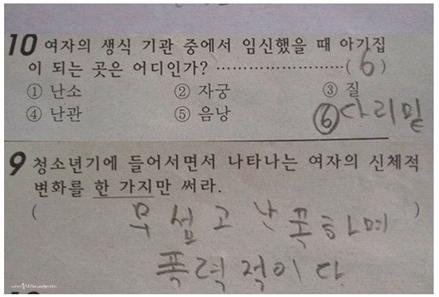 10 여자의 생식 기관 중에서 임신했을 때 아기집
이 되는 곳은 어디인가? ························( 6 )
① 난소 ② 자궁 ③ 질
④ 난관 ⑤ 음낭 ⑥ 다리밑
9 청소년기에 들어서면서 나타나는 여자의 신체적
변화를 한 가지만 써라.
( 무섭고 난폭하며
폭력적이다